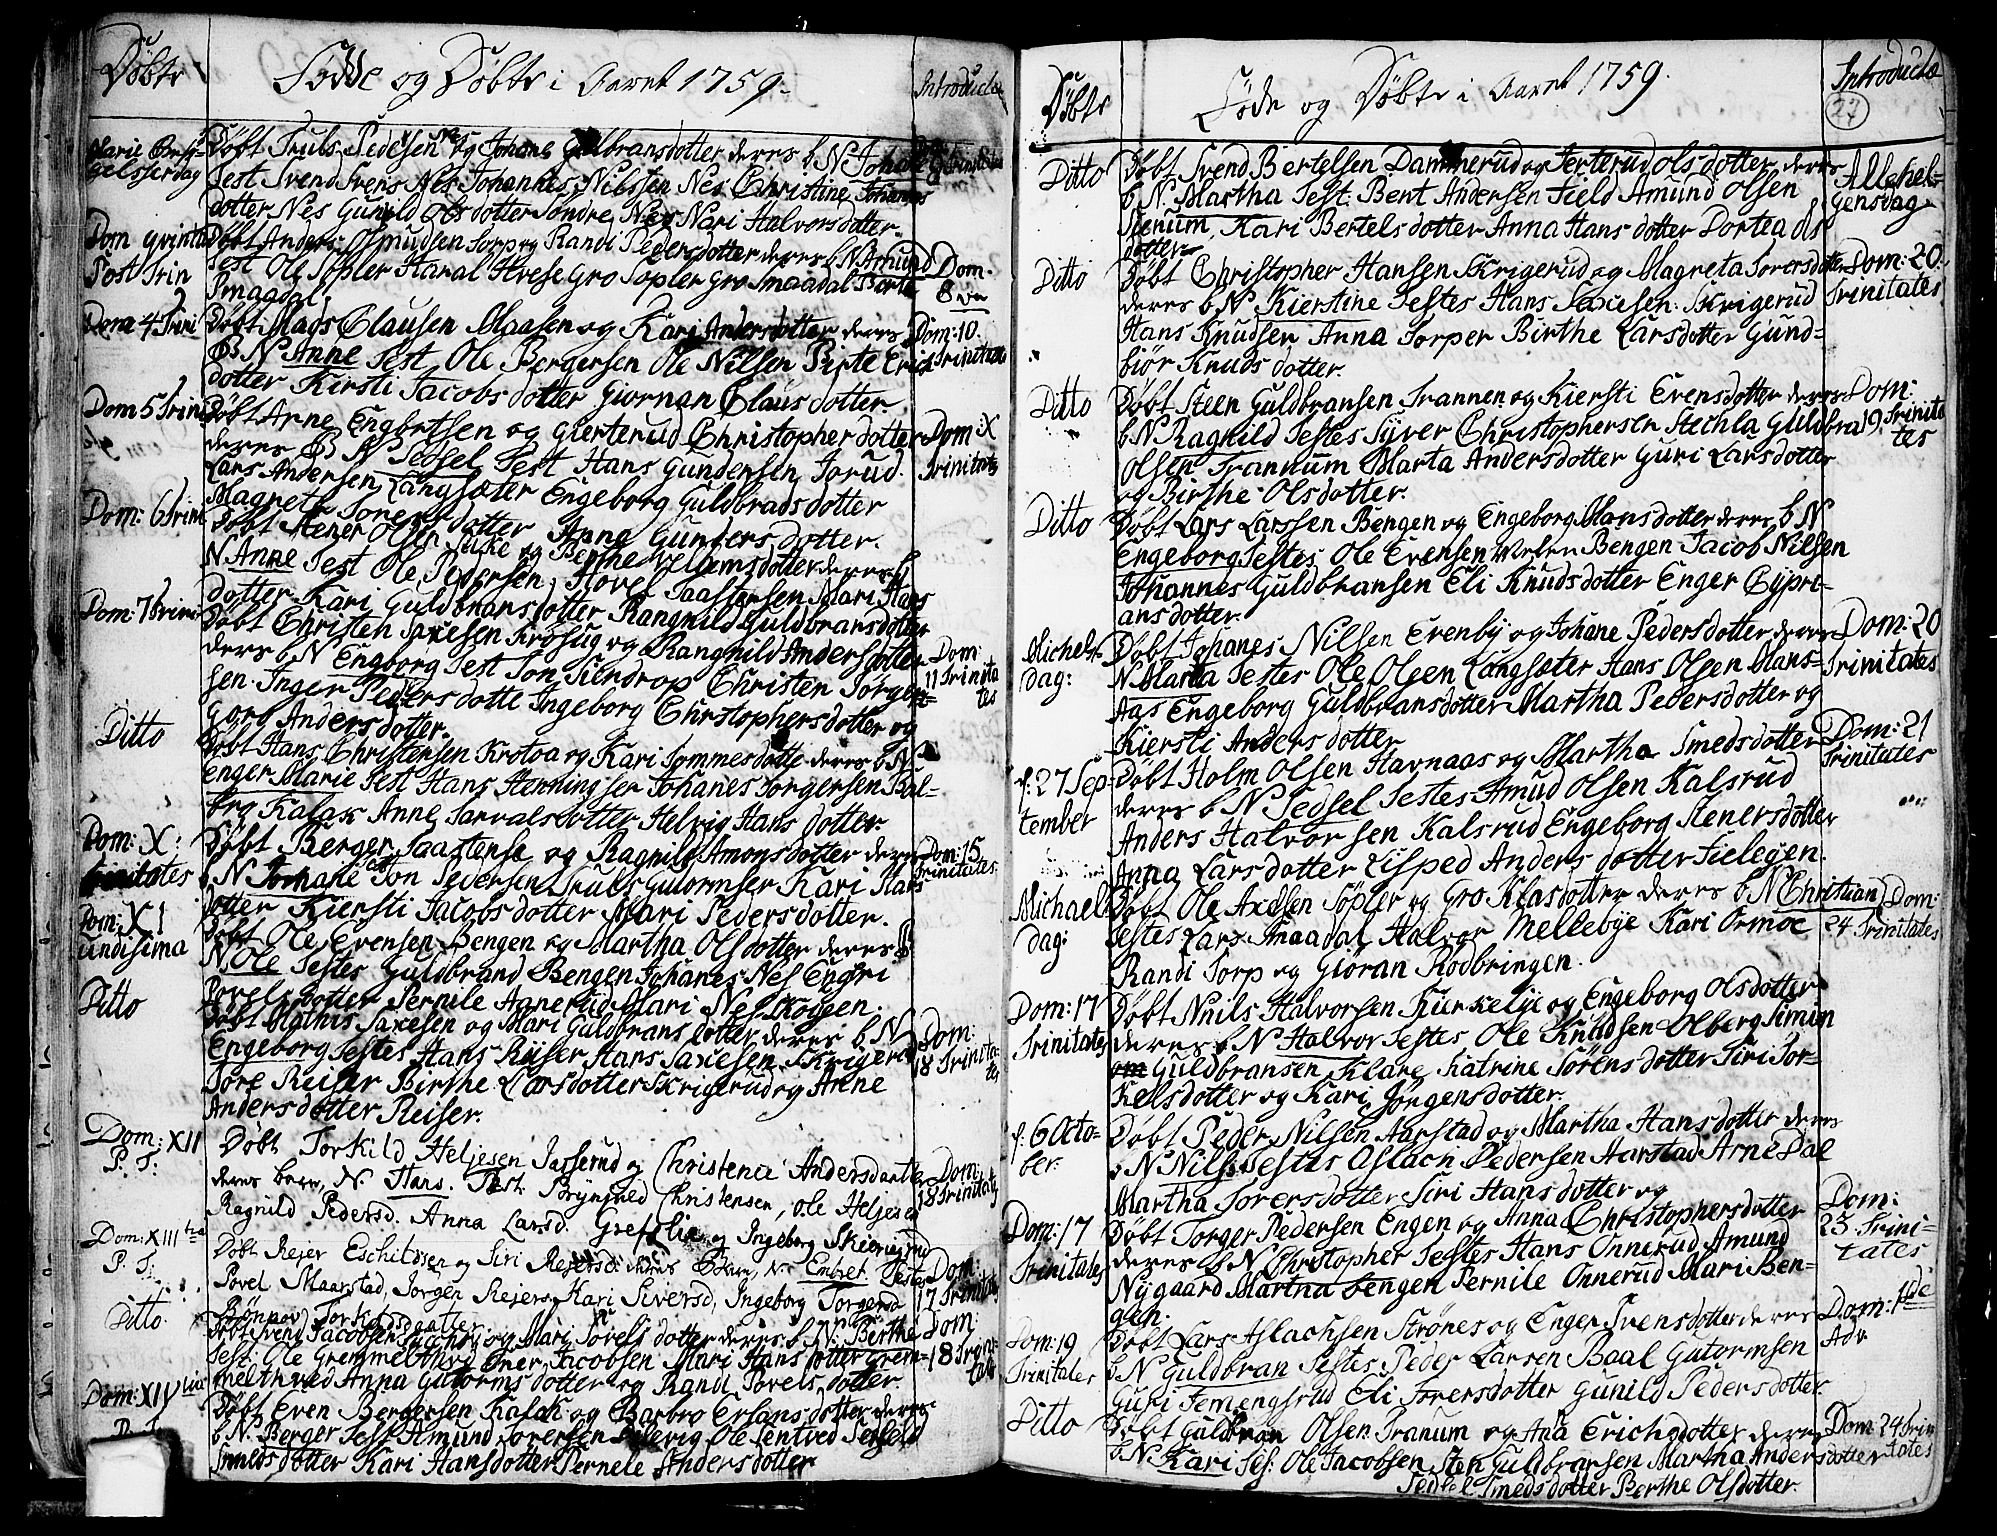 Döbte
Födde og Döbte i Aaret 1759.
Introducte
Marie Besö-
gelsesdag
Döbt Truls Pedersen Nes og Johane Gulbransdotter deres b N Johane
Test Svend Svens Nes Johannes Nilssen Nes Christine Johanes
dotter Nes Gunild Olsdotter Söndre Nes Mari Halvorsdotter.
Dom qvinta
Post Trin
Döbt Anders Osmudsen Sorp og Randi Pedersdotter deres b N Amund
Test Ole Söpler Haral Hvese Gro Söpler Gro Smaadal Berte
Smagdal
Dom:
8va
Dom 4 Trini
Döbt Mads Clausen Maasen og Kari Andersdotter deres
B N Anne Test Ole Bergersen Ole Nilsen Birte Erics
dotter Kirsti Jacobsdotter Giornan Clausdotter.
Dom:10.
Trinitatis
Dom 5 Trini
Döbt Arne Engbretsen og Gierterud Christopherdotter
deres B N Sedsel Test Hans Gundersen Jorud.
Lars Andersen Langsæter Engeborg Guldbradsdotter
Magnete Sorensdotter Anna Gundersdotter.
Dom: X
Trinitatis
Dom: 6 Trini
Döbt Stener Olsen Silke og Berthe Velomsdotter deres b
N Anne Test Ole Pedersen, Hovel Taastensen Mari Hans
dotter Kari Guldbransdotter Rangnild Guldbransdotter
Dom: 7 Trini
Döbt Christen Saxesen Krosug og Rangnild Andersdotter
deres b N Engborg Test Jon Tiendrop Christen Jörgen-
sen. Inger Pedersdotte Ingeborg Christophersdotter og
Goro Andersdotter.
Dom:
11 Trinita
tes
Ditto
Döbt Hans Christensen Krotoa og Kari Tommesdotte deres b N
Enger Marie Test Hans Henningser Johanes Jorgensen Bal-
Anne Tarvalsdotter Helvig Hansdotter.
Dom: X:
Trinitates
Döbt Berger Taastense og Ragnild Amonsdotter deres
b N Johane Test Jon Pedersen Truls Gutormser Kari Hans
dotter Kiersti Jacobsdotter Mari Pedersdotter.
Dom:15
Trinitates
Dom: XI
undisima
Döbt Ole Evensen Bengen og Martha Olsdotter deres b
N Ole Testes Guldbrand Bengen Johanes Nes Engbri
Povelsdotter Pernile Hanerud Mari Neskogen.
Ditto
Döbt Mathis Saxesen og Mari Guldbransdotter deres b N
Engeborg Testes Hans Reiser Hans Saxesen Skrigerud
Tore Reiser Birthe Larsdotter Skrigerud og Anne
Andersdotter Reiser.
Dom:
18 Trinita-
tes
Dom: XII
P. T:
Döbt Torkild Heljesen Jasserud og Christence Andersdaatter
deres barn, N. Hans. Test. Brynjuld Christensen, Ole Heljesen
Ragnild Pedersd. Anna Larsd. Grefslie og Ingeborg Skierigrud
Dom:
18 Trinitatis
Dom: XIII
P. T:
Döbt Rejer Eschildsen og Siri Rejersd: deres Barn, N. Embret. Testes
Povel Maarstad, Jørgen Rejers. Kari Siversd, Ingeborg Torgersd
Rönnov Torkildsdaatter.
Dom:
17 Trinitatis
Ditto
Döbt Svend Jacobsen og Mari Povelsdotter deres b. N: Berthe
Test: Ole Gremmeltved Ener Jacobsen Mari Hansdotter Grem-
meltvied Anna Gutormsdotter og Randi Povelsdotter.
Dom:
18 Trini-
tates
Dom: XIV
P. T.
Döbt Even Bergersen Kasch og Barbro Ersansdotter deres
b N. Berger Test Amund Torersen Ole Tentved
Kari Hansdotter Pernele Andersdotter
Döbte
Föde og Döbte i Aaret 1759.
Introducte
27
Ditto
Döbt Svend Bertelsen Dammerud og Jerterud Olsdotter deres
b N. Martha Test: Bent Andersen Field Amund Olsen
Stenum, Kari Bertelsdotter Anna Hansdotter Dortea Ols
dotter
Allehel-
gensdag
Ditto
Döbt Christopher Hansen Skrigerud og Magreta Torersdotter
deres b N Kierstine Testes Hans Saxesen: Skrigerud
Hans Knudsen Anna Torper Birthe Larsdotter Gund-
biör Knudsdotter.
Dom:20.
Trinitates
Ditto
Döbt Steen Guldbransen Trannen og Kiersti Evensdotter deres
b N Ragnild Testes Syver Christophersen Stechla Guldbra
Olsen Trannum Marta Andersdotter Guri Larsdotter
og Birthe Olsdotter.
Dom:
19 Trinita
tes
Ditto
Döbt Lars Larssen Bengen og Engeborg Hansdotter deres b N
Engeborg Testes Ole Evensen Bengen Jacob Nilsen
Johannes Guldbransen Eli Knudsdotter Enger Cypri-
ansdotter.
Michels-
dag:
Döbt Johanes Nilsen Evenby og Johane Pedersdotter deres
N Marta Testes Ole Olsen Langsæter Hans Olsen Mans-
aas Engeborg Guldbransdotter Martha Pedersdotter og
Kiersti Andersdotter
Dom:20
Trinitates
f: 27 Sep-
tember
Döbt Holm Olsen Havnaas og Martha Smedsdotter
deres b N Sedsel Testes Amud Olsen Kalsrud
Anders Halvorsen Kalsrud Engeborg Stenersdotter
Anna Larsdotter Lisped Andersdotter Fielegen.
Dom:21
Trinitates
Michaels
dag:
Döbt Ole Axelsen Söpler og Gro Klasdotter deres b N Christian
Testes Lars Smaadal Halvor Mellebye Kari Ormoe
Randi Torp og Giöran Rodbringen.
Dom:
24 Trinitates
Dom:17
Trinitates
Döbt Nils Halvorsen Kurkelye og Engeborg Olsdotter
deres b N Halvor Testes Ole Knudsen Olberg Simin
Guldbransen Klare Katrine Sörensdotter Siri Tor-
Kelsdotter og Kari Jörgensdotter.
f: 6 Octo-
ber:
Döbt Peder Nilsen Aarstad og Martha Hansdotter deres
b N Nils Testes Aslach Pedersen Harstad Arne Dal
Martha Torersdotter Siri Hansdotter og
Dom:17
Trinitates
Döbt Torger Pedersen Engen og Anna Christophersdotter
deres b N Christopher Testes Hans Onnerud Amund
Nygaard Martha Bengen Pernile Onnerud Mari Ben-
gen.
Dom:
23 Trini-
tates
Dom:19
Trinitales
Döbt Lars Aslachsen Strönes og Enger Svensdotter deres
b N Guldbran Testes Peder Larsen Baal Gutormsen
Guri Femengsrud Eli Torersdotter Gunild Pedersdotter.
Dom: 1de
Adv
Ditto
Döbt Guldbran Olsen Tranum og Ana Erichsdotter deres
b N Kari Tes: Ole Jacobsen Sten Guldbransen Martha Andersdotter
Sedsel Smedsdotter Berthe Olsdotter.
Dom 24 Trini
tates